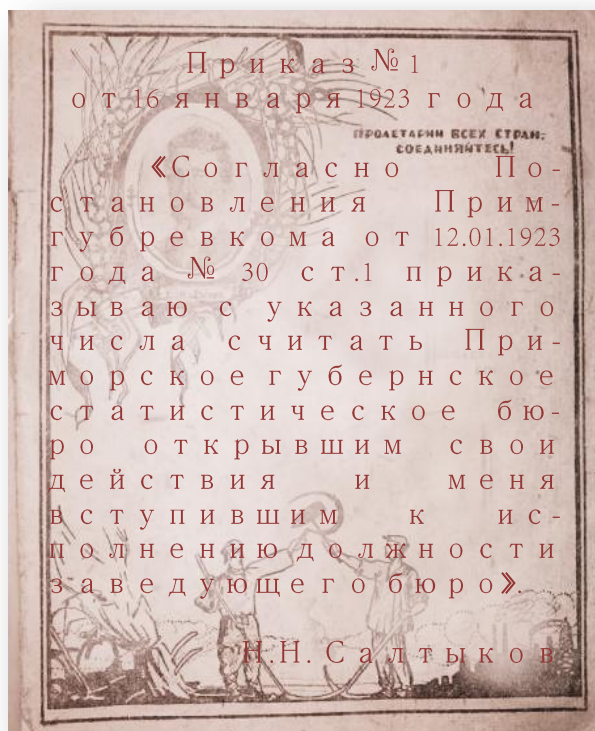 Приказ № 1
от 16 января 1923 года
ПРОЛЕТАРИИ ВСЕХ СТРАН,
СОЕДИНЯЙТЕСЬ!
«Согласно По-
становления Прим-
губревкома от 12.01.1923
года № 30 ст.1 прика-
зываю с указанного
числа считать При-
морское губернское
статистическое бю-
ро открывшим свои
действия и меня
вступившим к ис-
полнению должности
заведующего бюро».
Н.Н. Салтыков